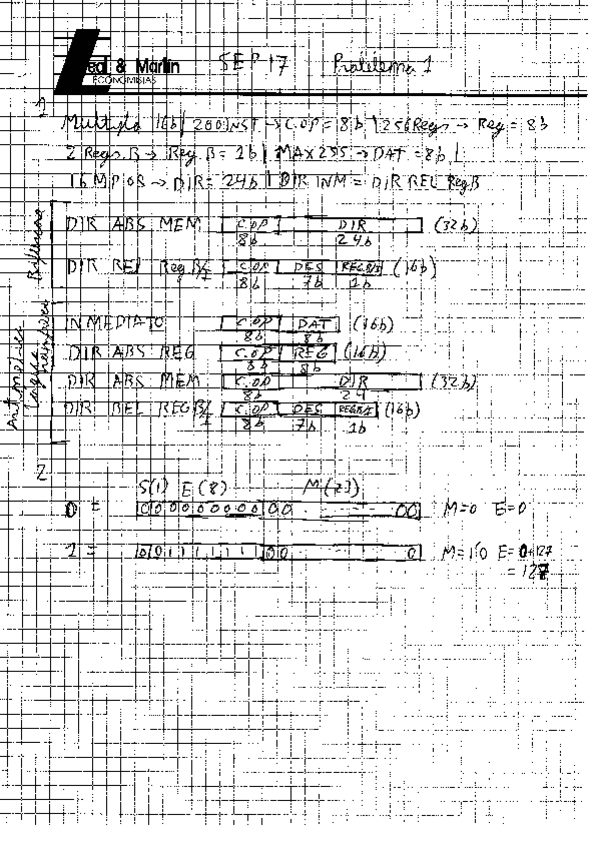 Leal & Martín SEP 17 Problema 1
ECONOMISTAS
1)
Multiplo 16b | 200 INST → C.OP = 8b | 256 Regs → Reg = 8b
2 Regs.B → Reg.B = 1b | MAX 255 → DAT = 8b |
16 MP OB → DIR = 24b | DIR INM = DIR REL RegB
DIR ABS MEM C.OP DIR (32b)
8b 24b
DIR REL Reg.B/I C.OP DES REG.B/I (16b)
8b 7b 1b
INMEDIATO C.OP DAT (16b)
8b 8b
DIR ABS REG C.OP REG (16b)
8b 8b
DIR ABS MEM C.OP DIR (32b)
8b 24
DIR REL REG B/I C.OP DES REGB/I (16b)
8b 7b 1b
2
S(1) E(8) M(23)
0 = 0 0 0 0 0 0 0 0 0 0 0 00 M=0 E=0
1 = 0 0 1 1 1 1 1 1 1 0 0 0 M=1'0 E=0+127
= 127